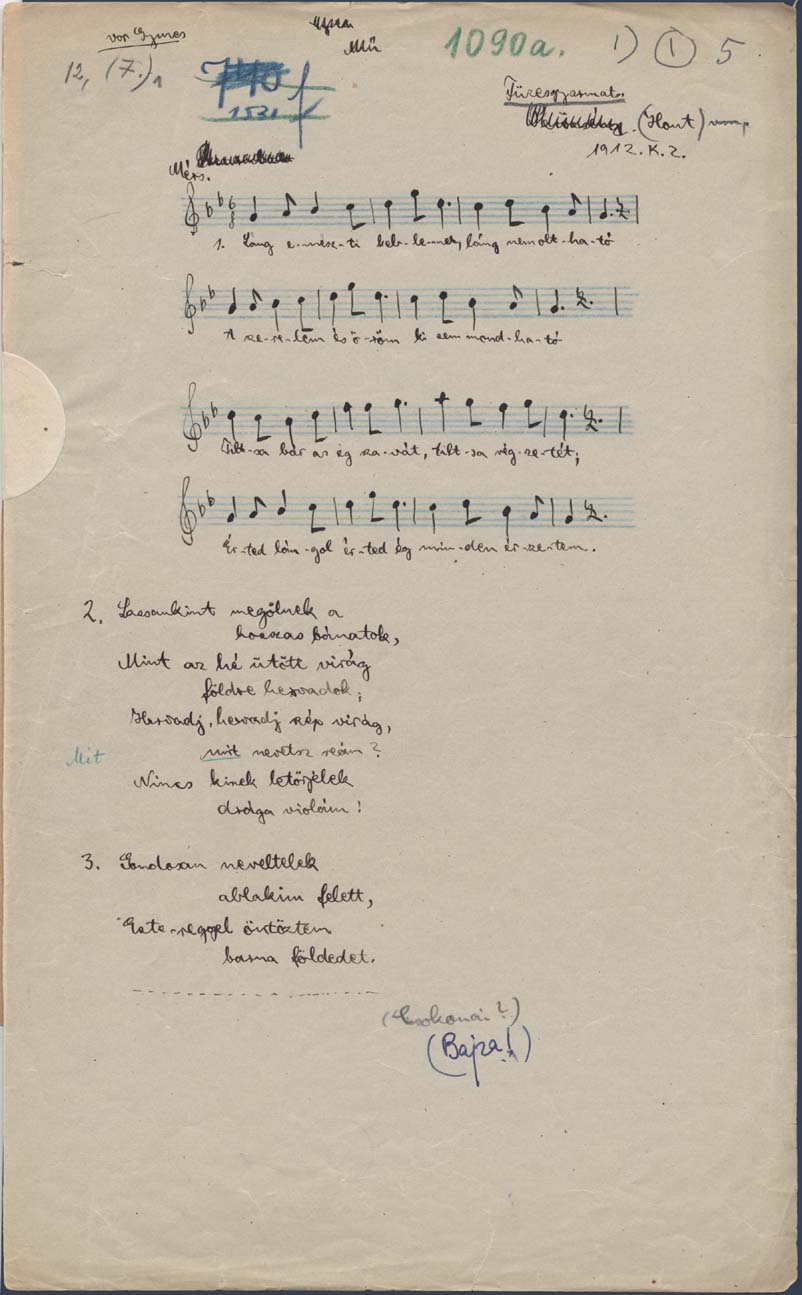 Mű
1090a.
1) 1 5
12, (7.)
1521
Füzesgyarmat.
(Hont)
1912. K. Z.
Mérs.
6
8
1. Láng e-mész-ti keb-le-met, láng nem olt-ha-tó
A sze-re-lem és ö-röm ki nem mond-ha-tó
Tilt-sa bár az ég sza-vát, tilt-sa vég-ze-tét;
Ér-ted lán-gol ér-ted ég min-den ér-ze-tem.
2. Lassankint megölnek a
hosszas bánatok,
Mint az hé ütött virág
földre hervadok;
Hervadj, hervadj szép virág,
Mit
mit nevetsz reám?
Nincs kinek letörjelek
drága violám!
3. Gondosan neveltelek
ablakim felett,
Este-reggel öntöztem
barna földedet.
(Csokonai?)
(Bajza!)